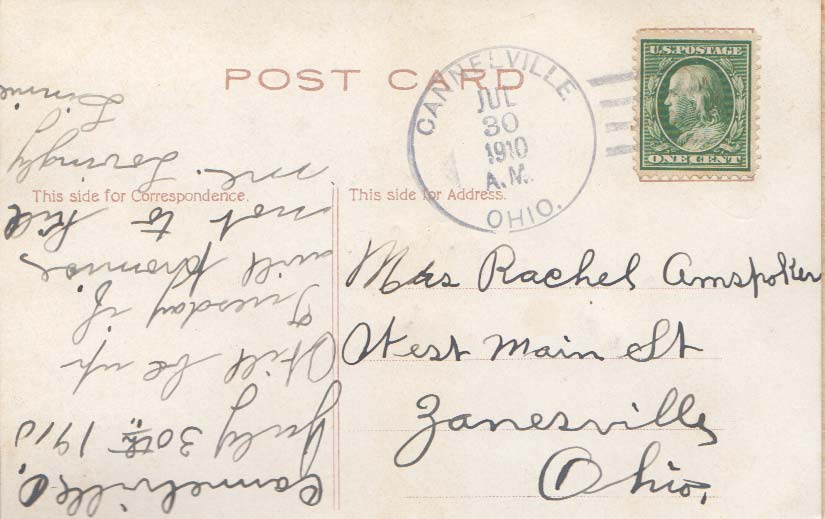 POST CARD
CANNELVILLE
JUL
30
1910
A.M.
OHIO.
U.S. POSTAGE
ONE CENT
This side for Correspondence.
This side for Address.
Mrs Rachel Amspoker
West Main St
Zanesville
Ohio.
Cannelville, O.
July 30th 1910
Will be up
Tuesday if
will promise
not to kill
me. Lovingly
Linnie